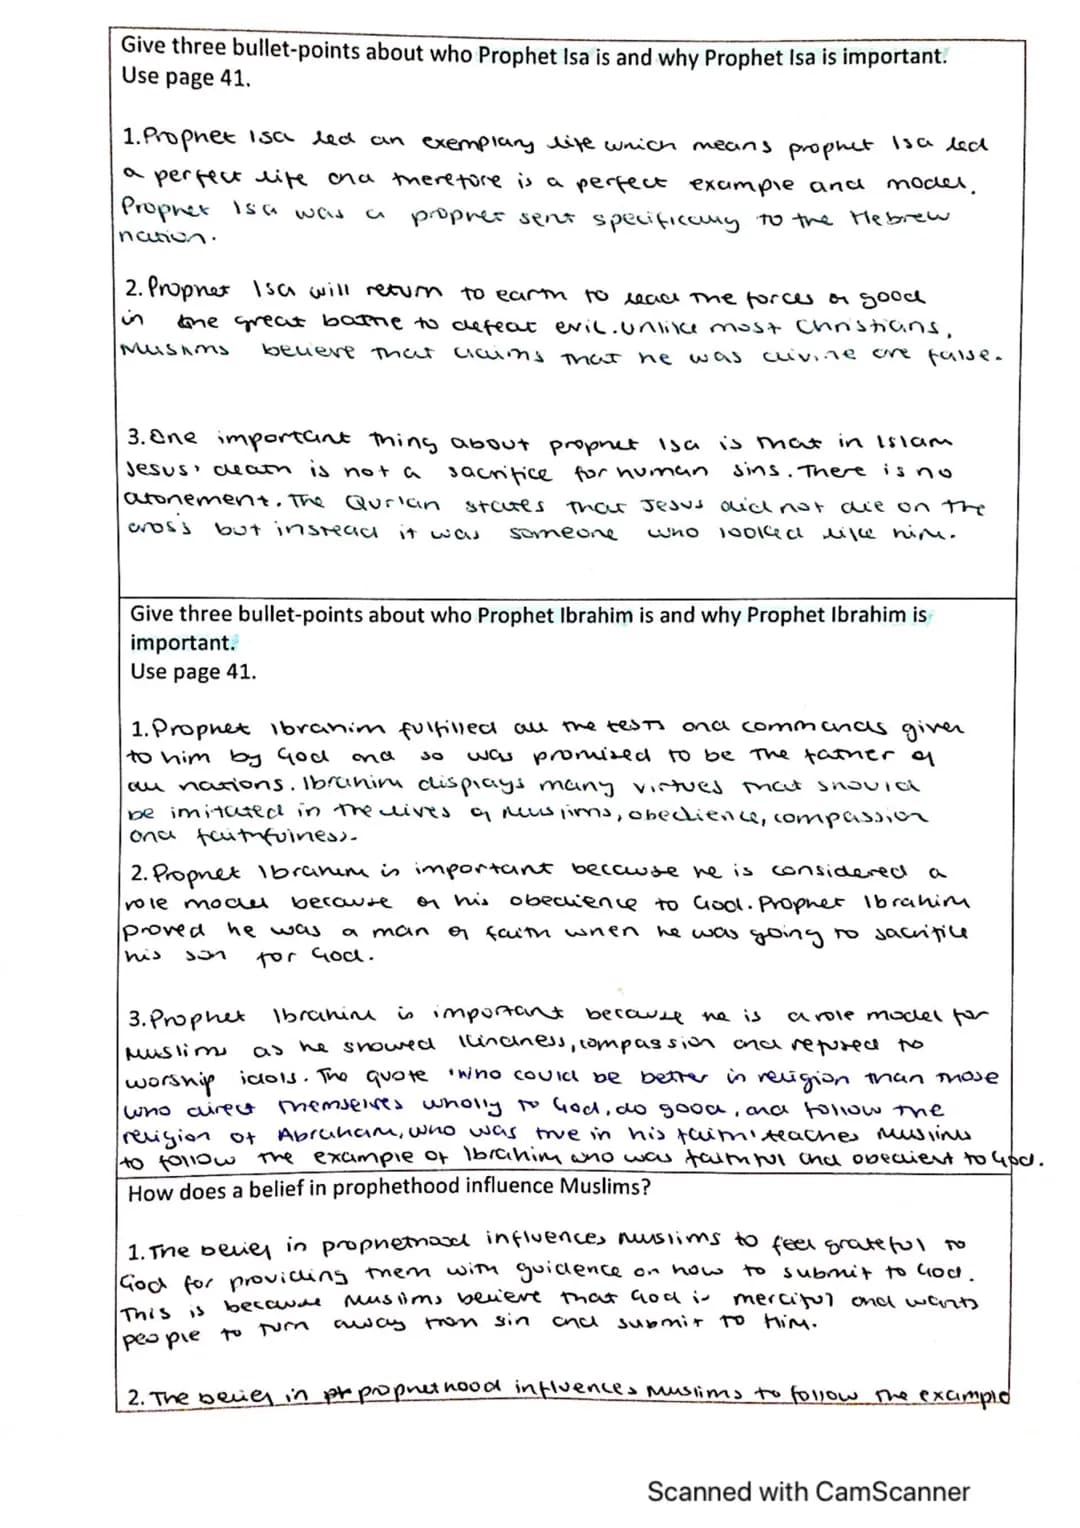 Give three bullet-points about who Prophet Isa is and why Prophet Isa is important.
Use page 41.
1.Prophet Isa led an exemplary life which means prophet Isa led
a perfect life and therefore is a perfect example and model.
Prophet Isa was a prophet sent specifically to the Hebrew
nation.
2.Prophet Isa will return to earth to lead the forces of good
in the great battle to defeat evil.Unlike most Christians,
Muslims believe that claims that he was divine are false.
3.One important thing about prophet Isa is that in Islam
Jesus' death is not a sacrifice for human sins.There is no
atonement. The Qur'an states that Jesus did not die on the
cross but instead it was someone who looked like him.
Give three bullet-points about who Prophet Ibrahim is and why Prophet Ibrahim is
important.
Use page 41.
1.Prophet Ibrahim fulfilled all the tests and commands given
to him by God and so was promised to be the father of
all nations. Ibrahim displays many virtues that should
be imitated in the lives of Muslims, obedience, compassion
and faithfulness.
2.Prophet Ibrahim is important because he is considered a
role model because of his obedience to God. Prophet Ibrahim
proved he was a man of faith when he was going to sacrifice
his son for God.
3.Prophet Ibrahim is important because he is a role model for
Muslims as he showed kindness, compassion and refused to
worship idols. The quote 'Who could be better in religion than those
who direct themselves wholly to God, do good, and follow the
religion of Abraham, who was true in his faith' teaches Muslims
to follow the example of Ibrahim who was faithful and obedient to God.
How does a belief in prophethood influence Muslims?
1.The belief in prophethood influences Muslims to feel grateful to
God for providing them with guidence on how to submit to God.
This is because Muslims believe that God is merciful and wants
people to turn away from sin and submit to Him.
2. The belief in prophethood influences Muslims to follow the example
Scanned with CamScanner